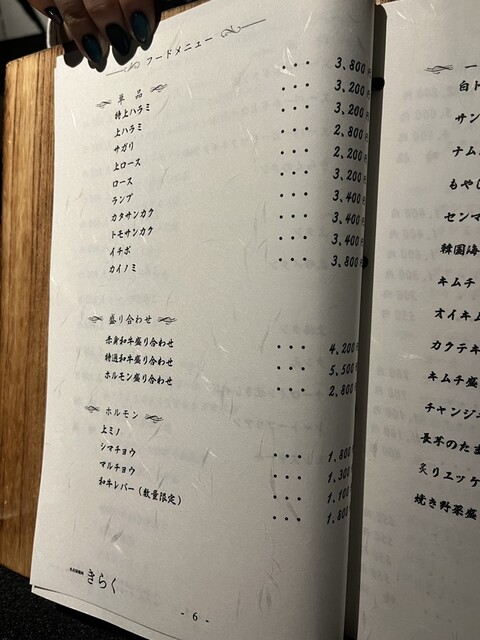 フードメニュー
単品
特上ハラミ ・・・ 3,800円
上ハラミ ・・・ 3,200円
サガリ ・・・ 3,200円
上ロース ・・・ 2,800円
ロース ・・・ 2,200円
ランプ ・・・ 3,200円
カタサンカク ・・・ 3,400円
トモサンカク ・・・ 3,400円
イチボ ・・・ 3,400円
カイノミ ・・・ 3,800円
盛り合わせ
赤身和牛盛り合わせ ・・・ 4,200円
特選和牛盛り合わせ ・・・ 5,500
ホルモン盛り合わせ ・・・ 2,800
ホルモン
上ミノ ・・・ 1,800
シマチョウ ・・・ 1,300
マルチョウ ・・・ 1,100
和牛レバー（数量限定） ・・・ 1,800
きらく
- 6 -
一
白
サン
ナム
もやし
センマ
韓国海
キムチ
オイキム
カクテキ
キムチ盛
チャンジ
長芋のた
炙りエッケ
焼き野菜盛